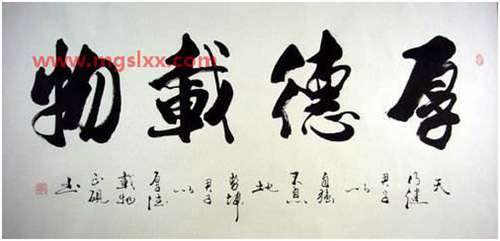 www.mgslxx.com
厚德載物
天行健君子以自强不息地勢坤君子以厚德載物